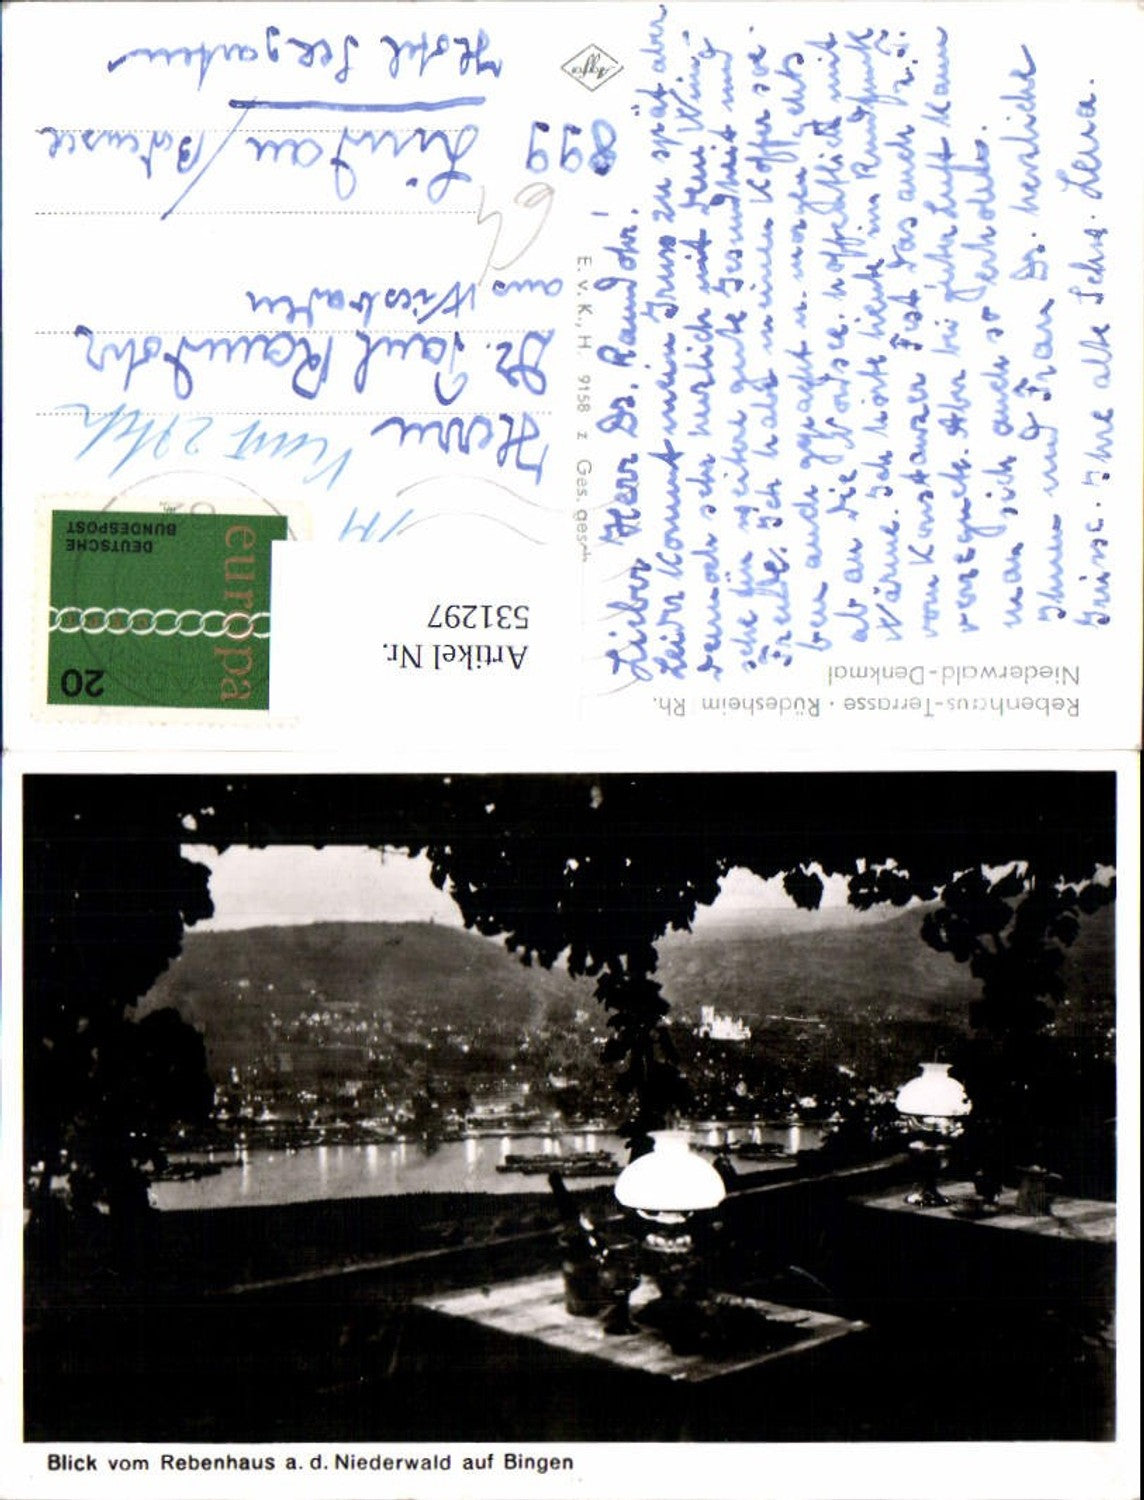 Rebenhaus-Terrasse · Rüdesheim Rh.
Niederwald-Denkmal
Lieber Herr Dr. Ramdohr.
Leider kommt mein Gruss zu spät aber
dennoch sehr herzlich mit dem Wun
sche für weitere gute Gesundheit und
Freude. Ich habe meinen Koffer so
ben auch gepackt u. morgen gehts
ab an die Bodensee. Hoffentlich mit
Wärme. Ich hörte heute im Rundfunk
vom Konstanzer
verregnet. Aber bei guter Luft kann
man sich auch so erholen.
Ihnen und Frau Dr. herzliche
Grüsse. Ihre alte Schw. Lena.
E. v. K., H. 9158 z Ges. gesch
Agfa
DEUTSCHE
BUNDESPOST
europa
20
Artikel Nr.
531297
Herrn
Dr. Paul Ramdohr
aus Wiesbaden
899 Lindau/Bodensee
Hotel Seegarten
Blick vom Rebenhaus a. d. Niederwald auf Bingen